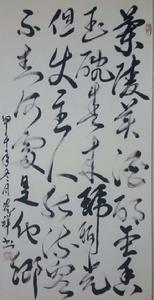 蘭陵美酒郁金香
玉碗盛来琥珀光
但使主人能醉客
不知何處是他鄉
甲午年冬月 祥书